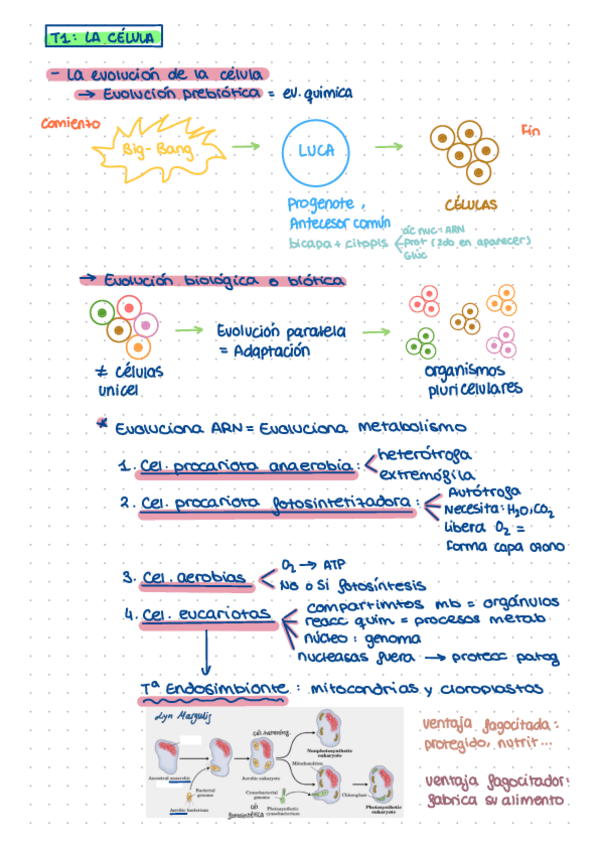 T1: LA CÉLULA
- La evolución de la célula
→ Evolución prebiótica = ev. química
Comienzo
Big-Bang
LUCA
Fin
Progenote,
Antecesor común
CÉLULAS
bicapa + citopls
ác nuc: ARN
Prot (2do en aparecer)
Glúc
→ Evolución biológica o biótica
Evolución paralela
= Adaptación
≠ células
unicel
organismos
pluricelulares
* Evoluciona ARN = Evoluciona metabolismo
1. Cel. procariota anaerobia:
heterótrofa
extremófila
2. Cel. procariota fotosintetizadora:
Autótrofa
Necesita: H2O, CO2
Libera O2 =
forma capa ozono
3. Cel. aerobias
O2 → ATP
No o Sí fotosíntesis
4. Cel. eucariotas
compartimtos mb = orgánulos
reacc quim = procesos metab
núcleo: genoma
nucleasas fuera → protecc patog
Tª Endosimbionte: mitocondrias y cloroplastos
Lyn Margulis
Nonphotosynthetic
eukaryote
Mitochondrion
Ancestral anaerobic
Aerobic eukaryote
Bacterial
genome
Cyanobacterial
genome
Chloroplast
Aerobic bacterium
Photosynthetic
cyanobacterium
Photosynthetic
eukaryote
ventaja fagocitada:
protegido, nutrit...
ventaja fagocitador:
fabrica su alimento